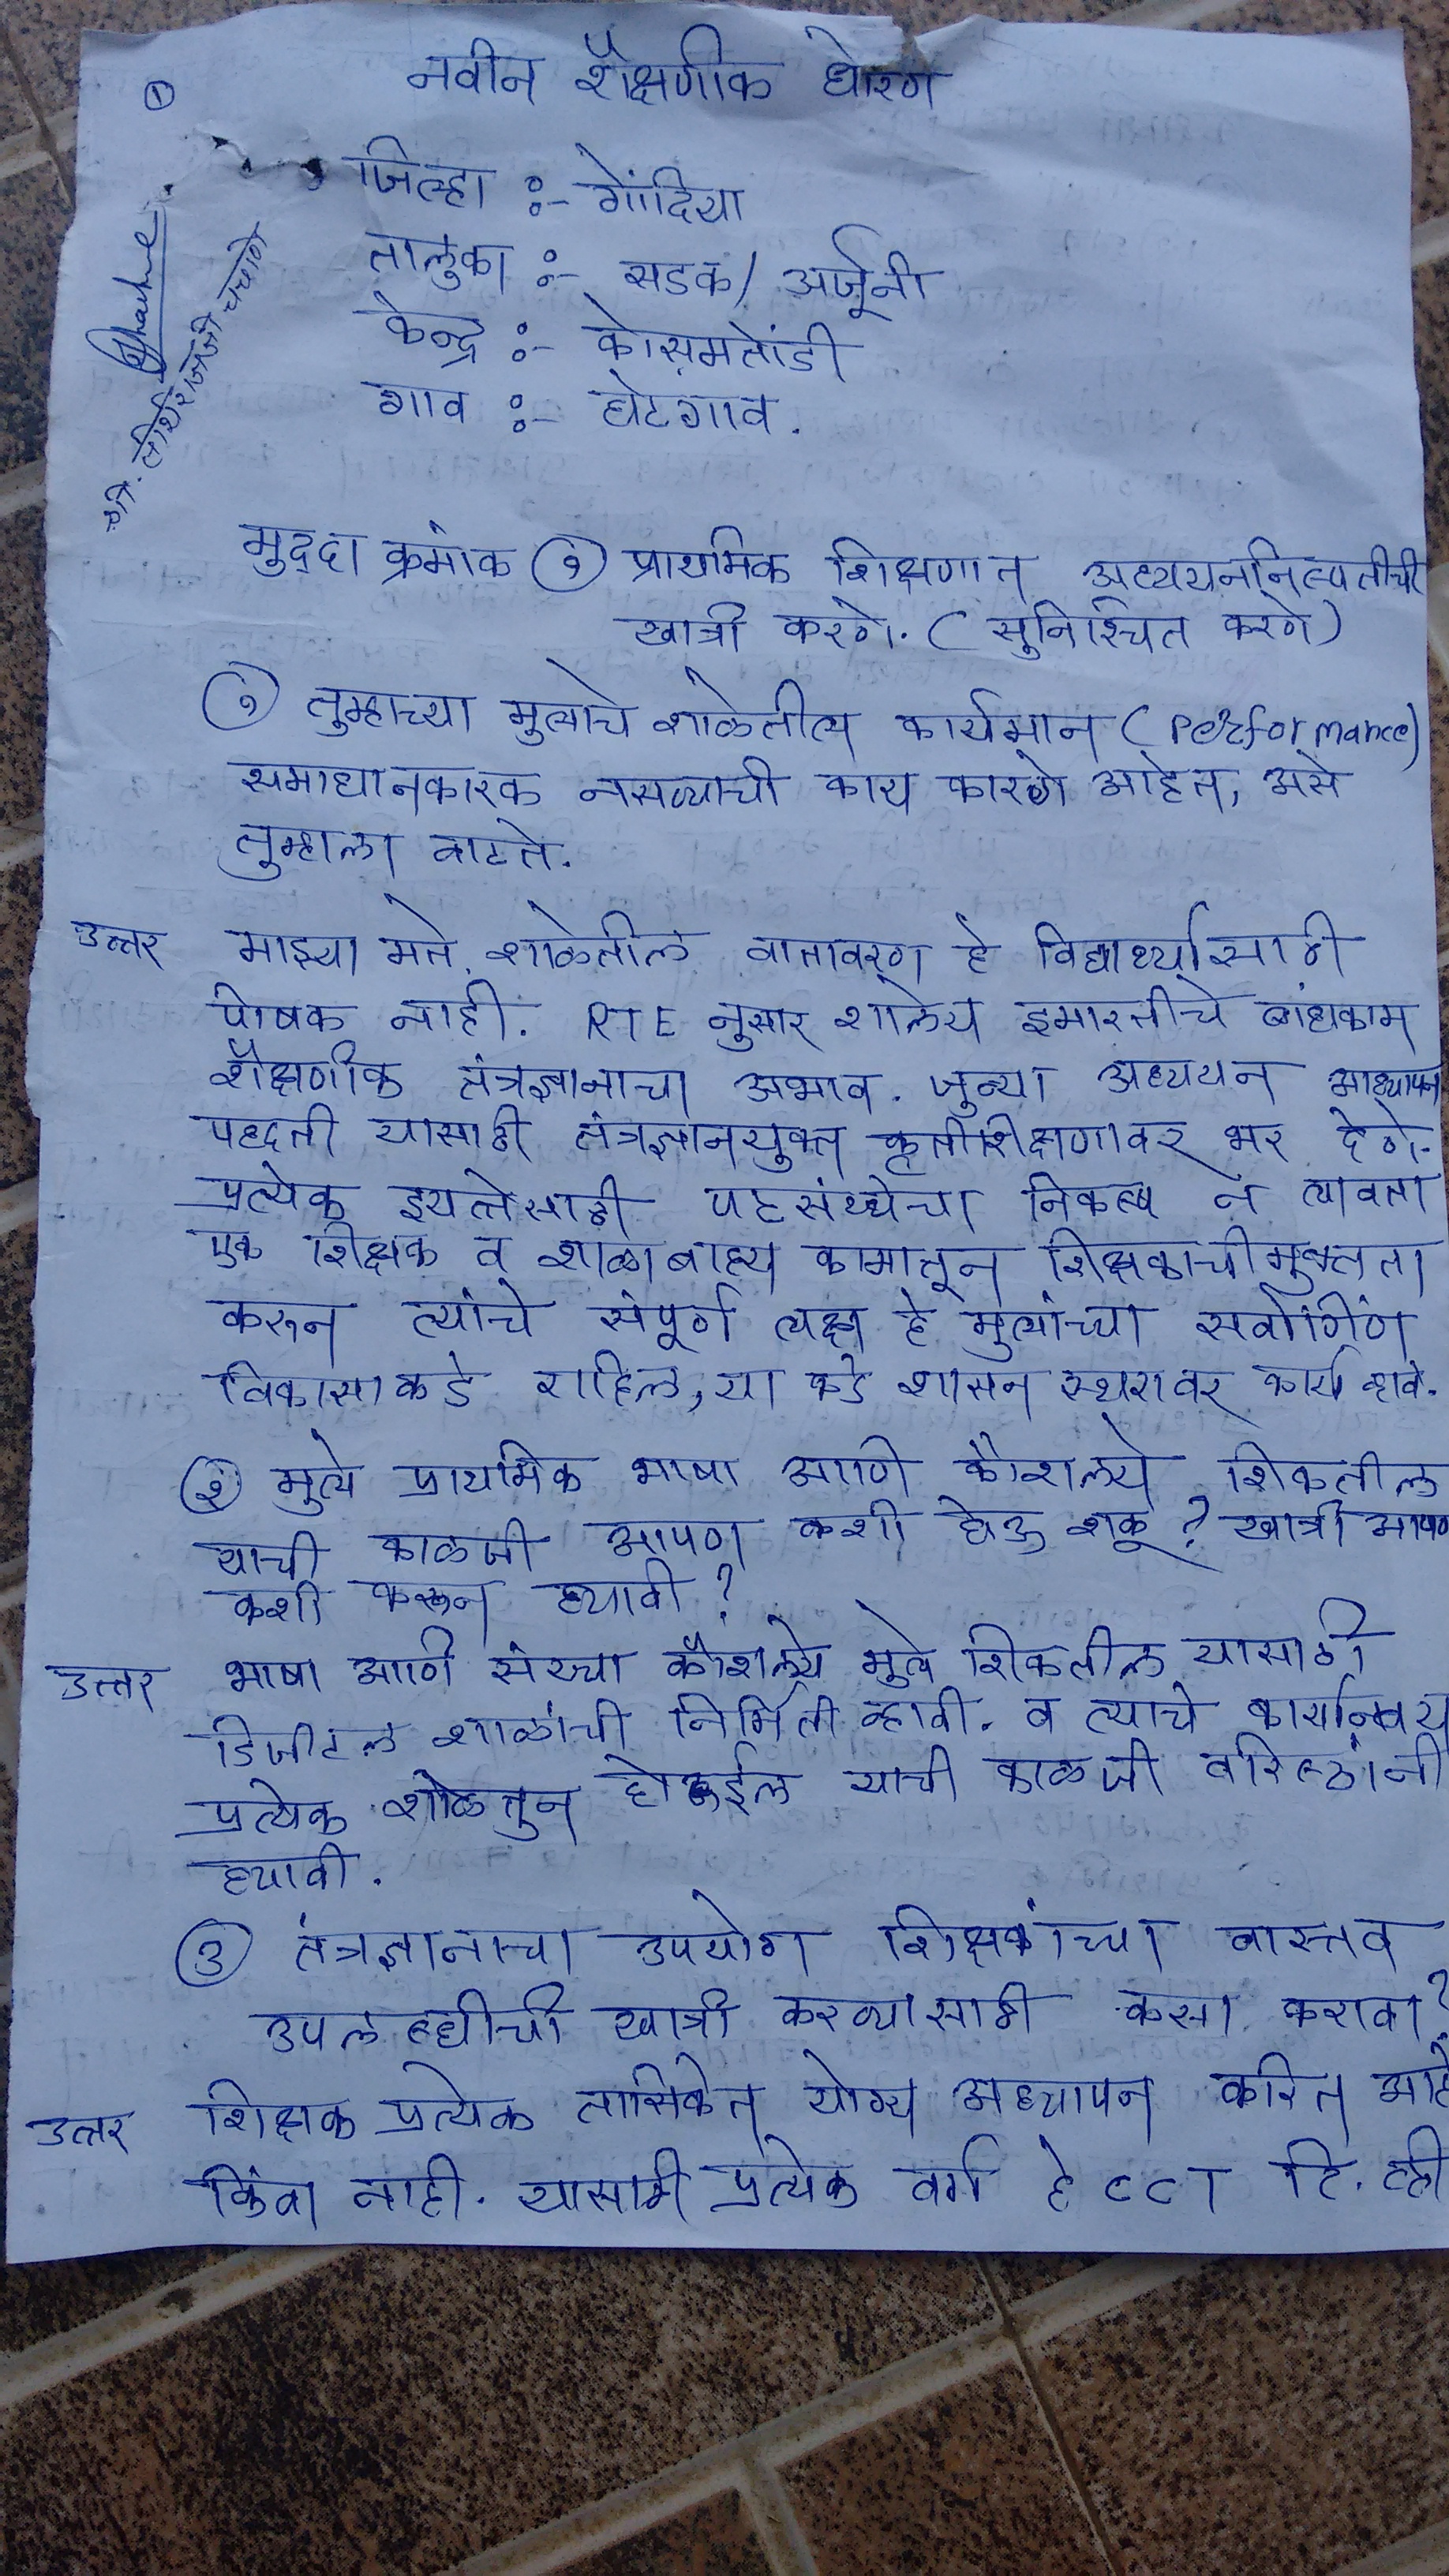 ①
नवीन शैक्षणीक धोरण
जिल्हा :- गोंदिया
तालुका :- सडक/ अर्जूनी
केन्द्र :- कोसमतोंडी
गाव :- घोटगाव.
मुद्दा क्रमांक ① प्राथमिक शिक्षणात अध्ययननिष्पतीची
खात्री करणे. ( सुनिश्चित करणे)
① तुम्हाच्या मुलाचे शाळेतील कार्यमान (Performance)
समाधानकारक नसण्याची काय कारणे आहेत, असे
तुम्हाला वाटते.
उत्तर माझ्या मते. शाळेतील वातावरण हे विद्यार्थ्यासाठी
पोषक नाही. RTE नुसार शालेय इमारतीचे बांधकाम
शैक्षणीक तंत्रज्ञानाचा अभाव. जुन्या अध्ययन अध्यापन
पध्दती यासाठी तंत्रज्ञानयुक्त कृतीशिक्षणावर भर देणे.
प्रत्येक इयत्तेसाठी पटसंख्येचा निकष न लावता
एक शिक्षक व शाळाबाह्य कामातून शिक्षकाची मुक्तता
करून त्यांचे संपूर्ण लक्ष हे मुलांच्या सर्वांगिण
विकासाकडे राहिल, या कडे शासन स्थरावर कार्य व्हावे.
② मुले प्राथमिक भाषा आणि कौशल्ये शिकतील
याची काळजी आपण कशी घेऊ शकू? खात्री आपण
कशी करून घ्यावी?
उत्तर भाषा आणि संख्या कौशल्ये मुले शिकतील यासाठी
डिजीटल शाळांची निर्मिती व्हावी. व त्याचे कार्यान्वय
प्रत्येक शाळेतुन होईल याची काळजी वरिष्ठांनी
घ्यावी.
③ तंत्रज्ञानाचा उपयोग शिक्षकांच्या वास्तव
उपलब्धीची खात्री करण्यासाठी कसा करावा?
उत्तर शिक्षक प्रत्येक तासिकेत योग्य अध्यापन करित आहे
किंवा नाही. यासाठी प्रत्येक वर्ग हे CCT टि. व्ही